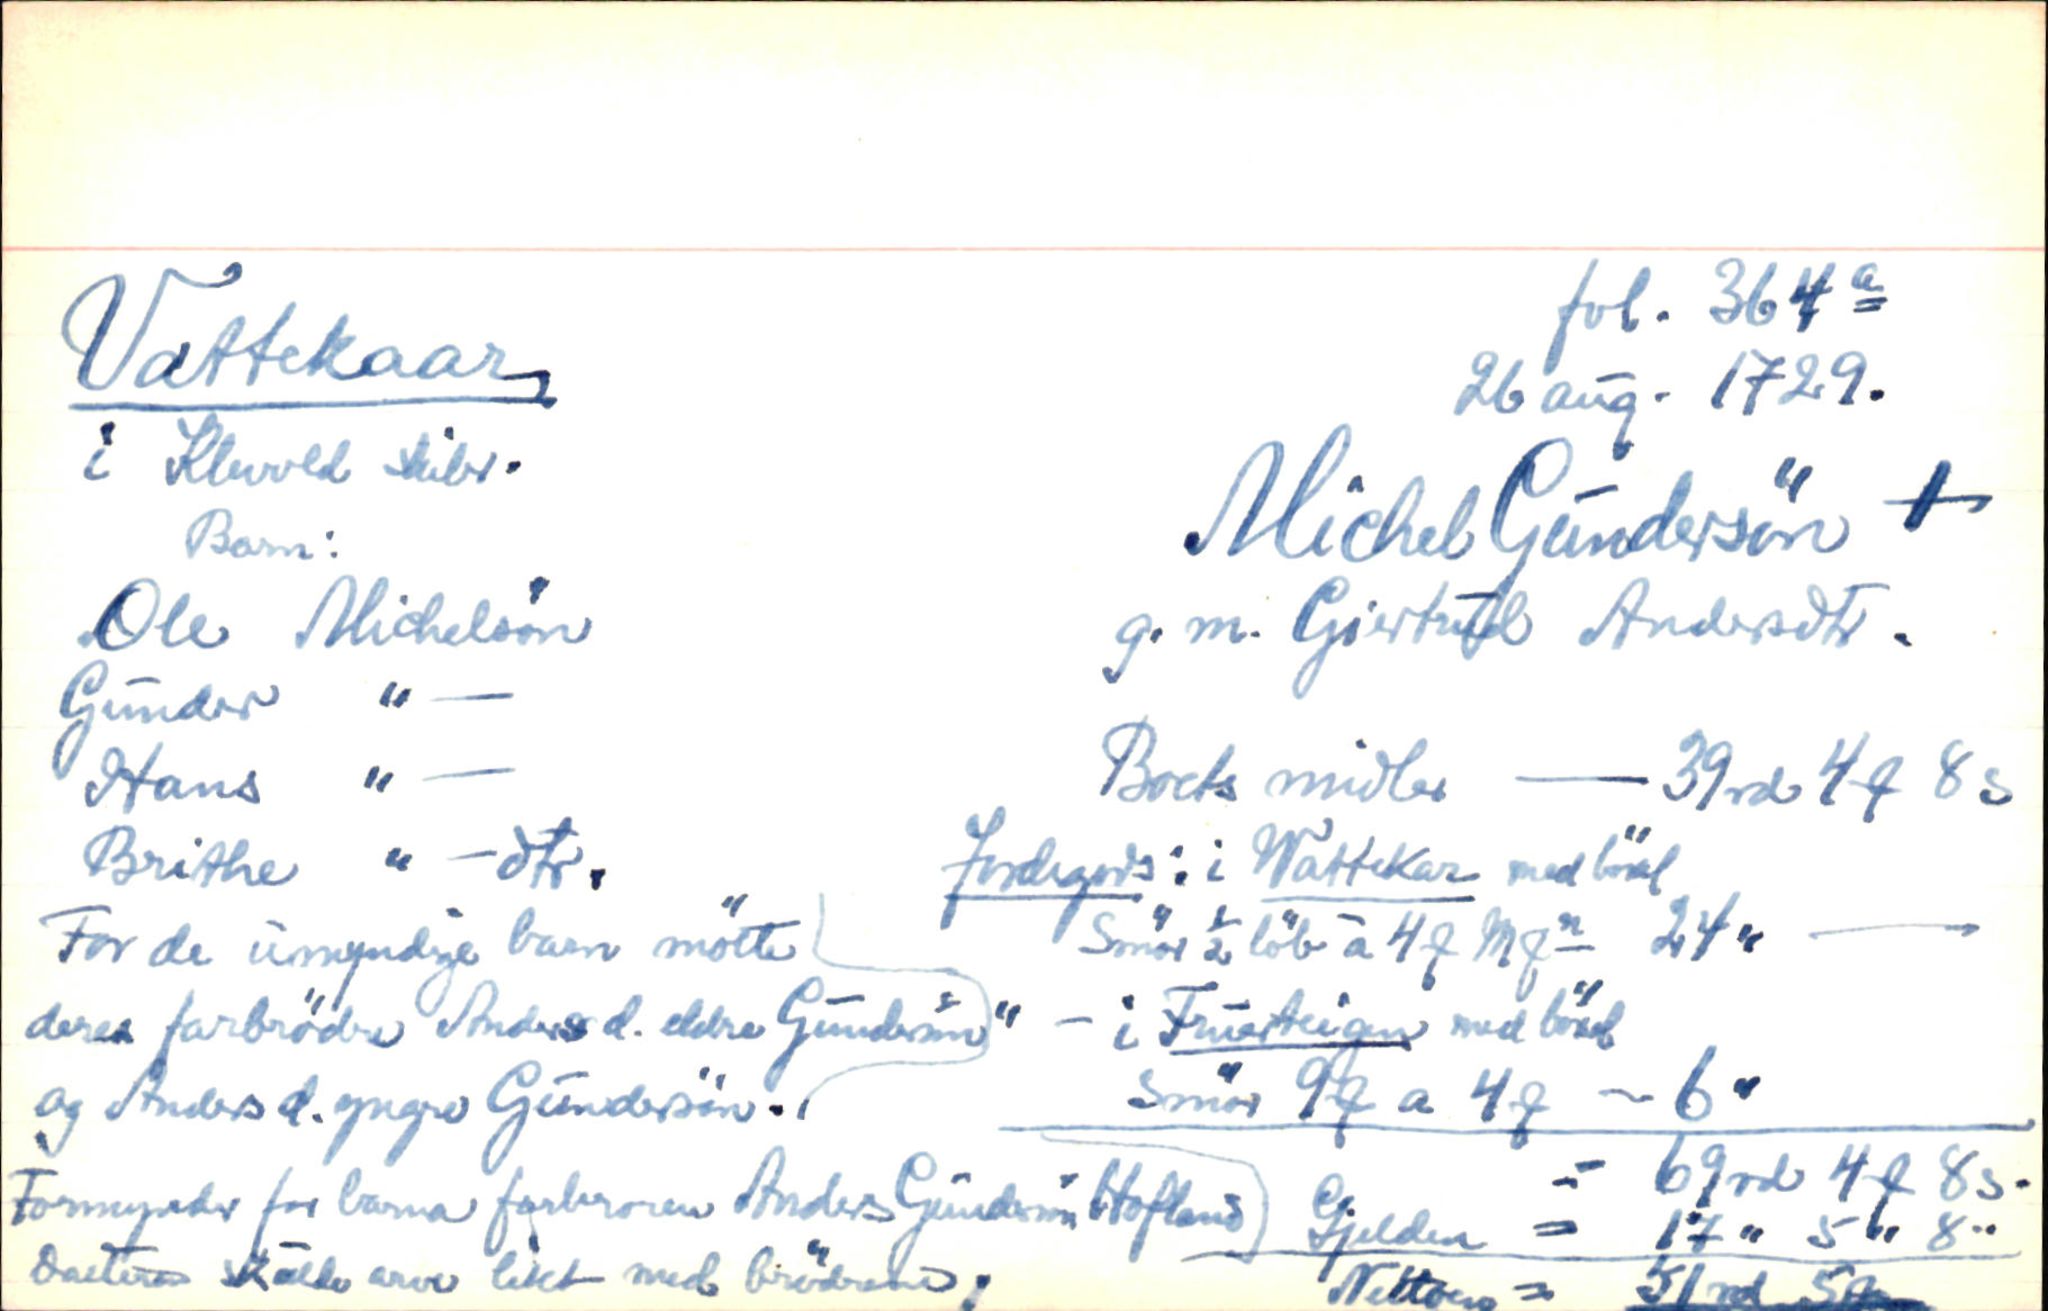 fol. 364 a
26 aug. 1729.
Vattekaar
i skibr.
Michel Gundersön +
Barn:
g. m. Giertrud Andersdtr.
Ole Michelsön
Gunder " —
Hans " —
Brithe " — dtr.
Boets midler — 39 rd 4 8 s
Jordegods: i Wattekar med böxel
Smör ½ löb a 4 24 " —
" — i med böxel
Smör 9 a 4 — 6 "
= 69 rd 4 8 s.
Gjelden = 17 " 5 " 8 "
Nettoen = 51 rd 5
For de umyndige barn mötte
deres farbrödre Anders d. eldre Gundersön
og Anders d. yngre Gundersön.
Formynder for barna farbroren Anders Gundersön Hofland
Datteren skulde arve likt med brödrene.